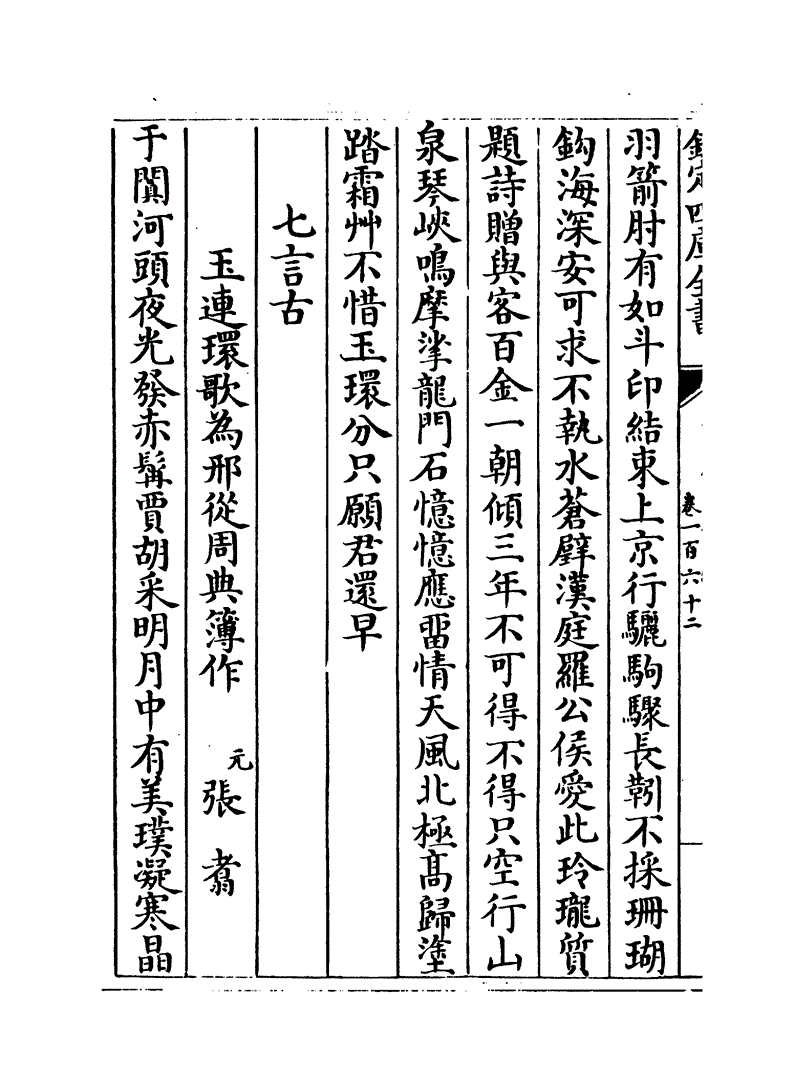 欽定四庫全書
卷一百六十二
羽箭肘有如斗印結束上京行驪駒驟長靷不採珊瑚
鈎海深安可求不執水蒼璧漢庭羅公侯愛此玲瓏質
題詩贈與客百金一朝傾三年不可得不得只空行山
泉琴峽鳴摩挲龍門石憶憶應畱情天風北極髙歸塗
踏霜艸不惜玉環分只願君還早
七言古
玉連環歌為邢從周典簿作 元 張翥
于闐河頭夜光發赤髯賈胡采明月中有美璞凝寒晶